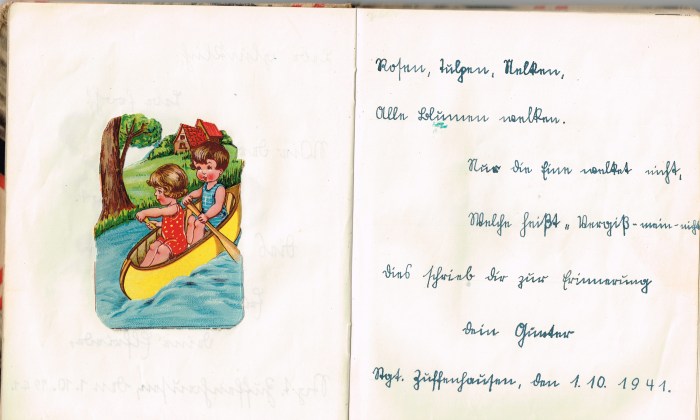 Rosen, Tulpen, Nelken,
Alle Blumen welken.
Nur die Eine welket nicht,
Welche heißt „Vergiß-mein-nicht
dies schrieb dir zur Erinnerung
dein Gunter
Stgt. Zuffenhausen, den 1. 10. 1941.